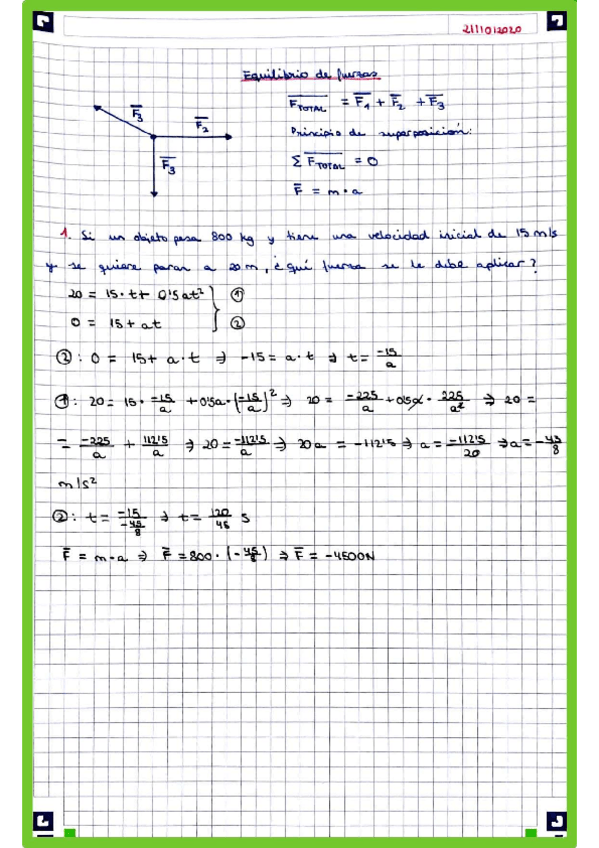 21/10/2020
Equilibrio de fuerzas
F̅₃
F̅₂
F̅₃
F̅TOTAL = F̅₁ + F̅₂ + F̅₃
Principio de superposición:
Σ F̅TOTAL = 0
F̅ = m·a
1. Si un objeto pesa 800 kg y tiene una velocidad inicial de 15 m/s
y se quiere parar a 20 m, ¿Qué fuerza se le debe aplicar?
20 = 15·t + 0'5at² ①
0 = 15 + at ②
②: 0 = 15 + a·t ⇒ -15 = a·t ⇒ t = -15/a
①: 20 = 15·-15/a + 0'5a·(-15/a)² ⇒ 20 = -225/a + 0'5a·225/a² ⇒ 20 =
= -225/a + 112'5/a ⇒ 20 = -112'5/a ⇒ 20a = -112'5 ⇒ a = -112'5/20 ⇒ a = -45/8
m/s²
②: t = -15/-45/8 ⇒ t = 120/45 s
F̅ = m·a ⇒ F̅ = 800·(-45/8) ⇒ F̅ = -4500N